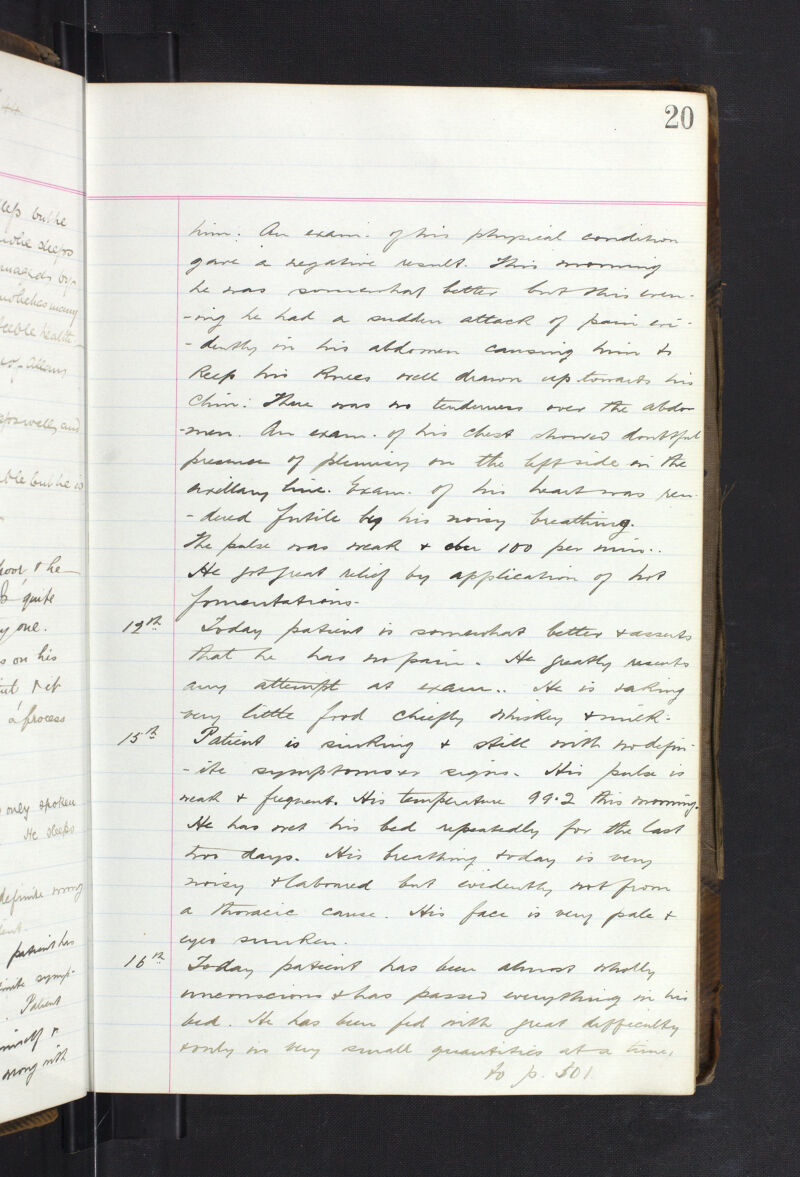 20
him. An exam. of his physical condition
gave a negative result. This morning
he was somewhat better but this even-
-ing he had a sudden attack of pain evi-
-dently in his abdomen causing him to
keep his knees well drawn up towards his
chin. There was no tenderness over the abdo-
-men. An exam. of his chest showed doubtful
presence of pleurisy on the left side in the
axillary line. Exam. of his heart was ren-
-dered futile by his noisy breathing.
The pulse was weak & over 100 per min..
He got great relief by application of hot
fomentations.
12th Today patient is somewhat better & asserts
that he has no pain. He greatly resents
any attempt at exam.. He is taking
very little food chiefly whiskey & milk.
15th Patient is sinking & still with no defin-
-ite symptoms or signs. His pulse is
weak & frequent. His temperature 99.2 this morning.
He has wet his bed repeatedly for the last
two days. His breathing today is very
noisy & laboured but evidently not from
a thoracic cause. His face is very pale &
eyes sunken.
16th Today patient has been almost wholly
unconscious & has passed everything in his
bed. He has been fed with great difficulty
& only in very small quantities at a time.
to p. 501
but he
sleeps
by
many
health
and
but he is
& he
quite
one.
on his
& it
a process
only spoken
He sleeps
definite wrong
patient has
sympt-
Patient
&
wrong with